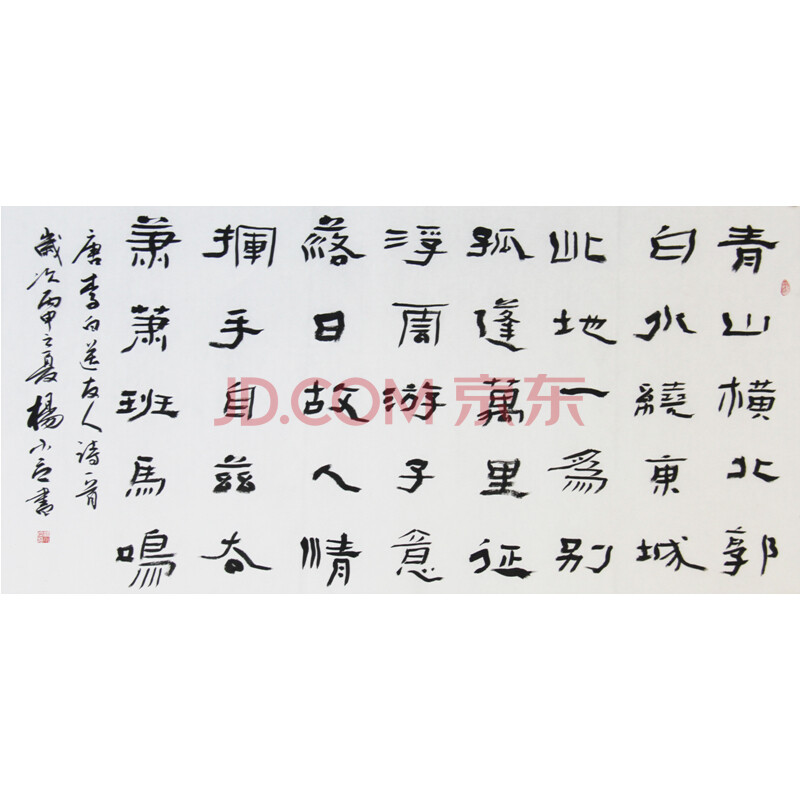 青山橫北郭
白水繞東城
此地一為別
孤蓬萬里征
浮雲游子意
落日故人情
揮手自茲去
蕭蕭班馬鳴
唐李白送友人詩一首
歲次丙申之夏楊小
書
JD.COM 京东